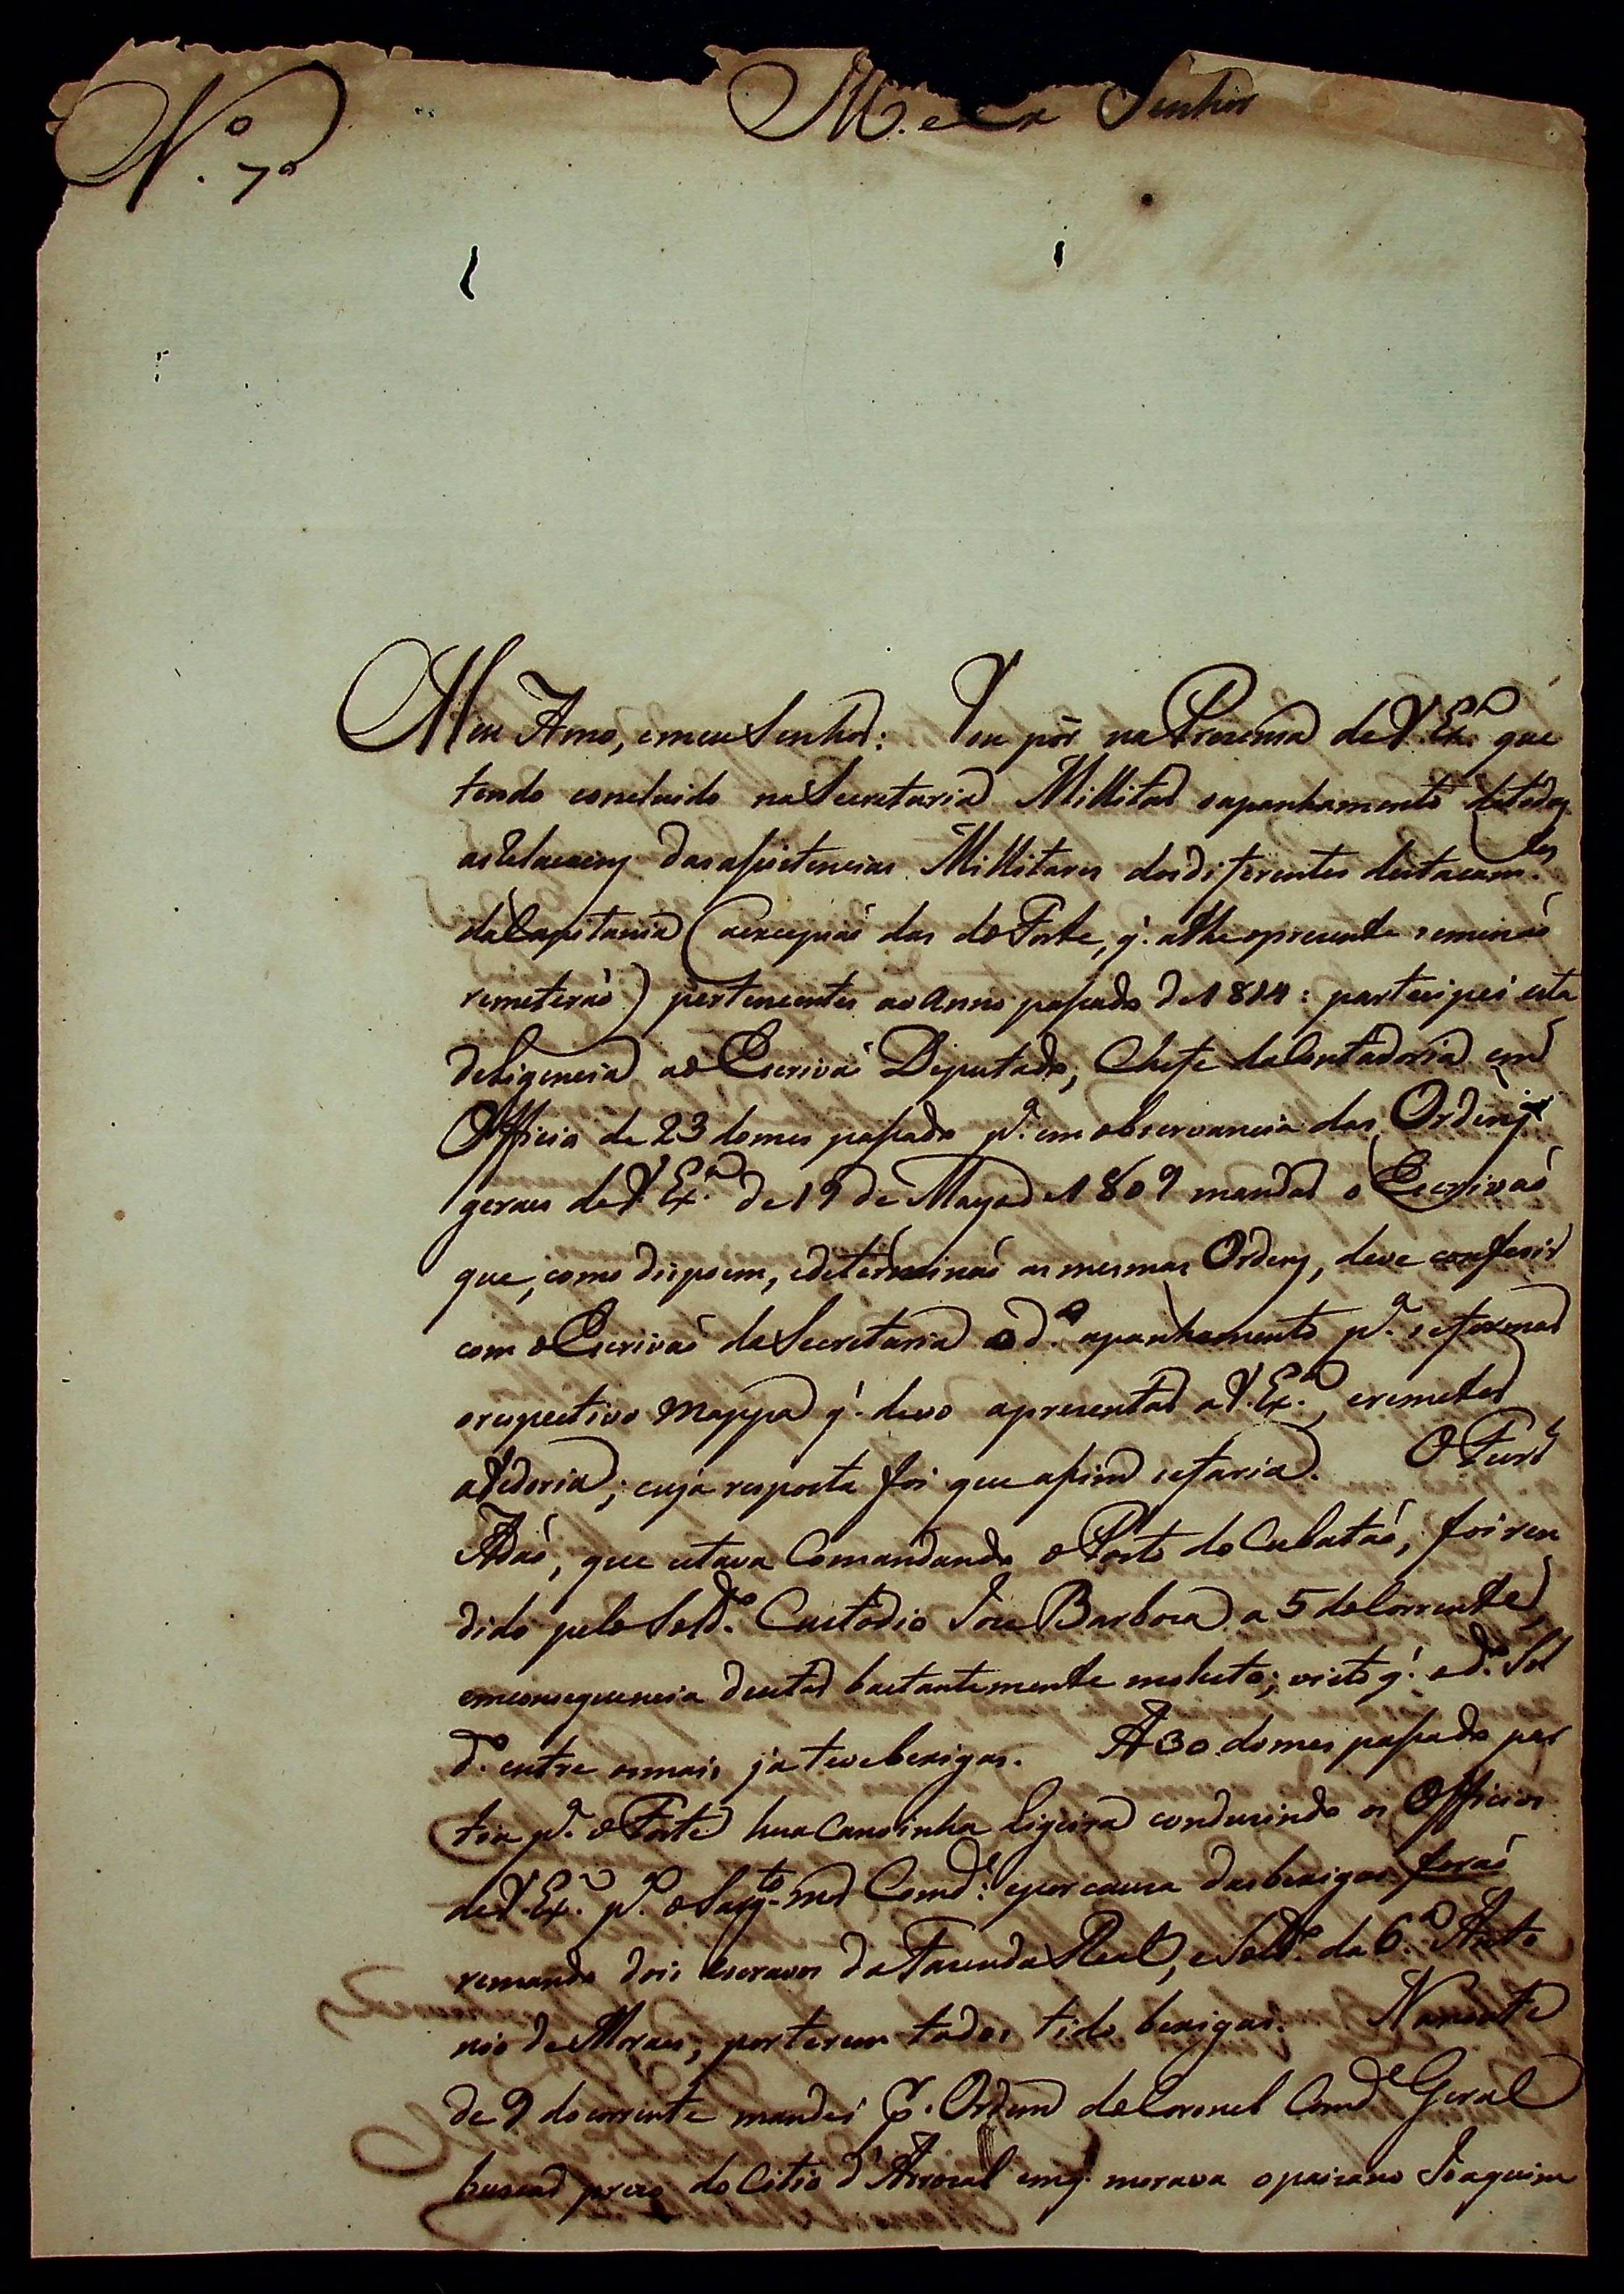 N.º 7º
Senhor
Meu Amo, e meu Senhor: Vou pôr na Prezensa de V. Ex.ª que
tendo concluido na Secretaria Millitar o apanhamento de todas
as Relacoens das asistencias Millitares dos diferentes destacam.tos
da Capitania (a excepsaõ das do Forte, q.' athe o prezente se me naõ
remeteraõ) pertencentes ao anno pasado de 1814: partecipei esta
deligencia ao Escrivaõ Deputado, Chefe da Contadoria em
Officio de 23 do mes pasado p.ª em observancia das Ordens
geraes de V. Ex.ª de 19 de Mayo de 1809 mandar o Escrivaõ
que, como dispoem, e determinaõ as mesmas Ordens, deve conferir
com o Escrivaõ da Secretaria o d.º apanhamento p.ª se formar
o respectivo Mappa q.' devo aprezentar a V. Ex.ª, e remeter
a Vedoria; cuja resposta foi que asim se faria. O Fur.el
Adaõ, que estava Comandando o Porto do Cubataõ, foi ren
dido pelo Sold.º Custodio Joze Barboza a 5 do Corrente,
em consequencia de estar bastantemente molesto; visto q.' o d.º Sol
d.º entre os mais ja teve bexigas. A 30 do mes pasado par
tio p.ª o Forte hua Canoinha ligeira conduzindo os Officios
de V. Ex.ª p.ª o Sarg.to mor Comd.e: e por cauza das bexigas foraõ
remando dois escravos da Fazenda Real, e Sold.º da 6.ª Anto
nio de Moraes, por terem todos tido bexigas. Na noite
de 9 do corrente mandei p. Ordem do Coronel Comd.e Geral
buscar prezo do Citio d'Arrozal em q.' morava o paizano Joaquim